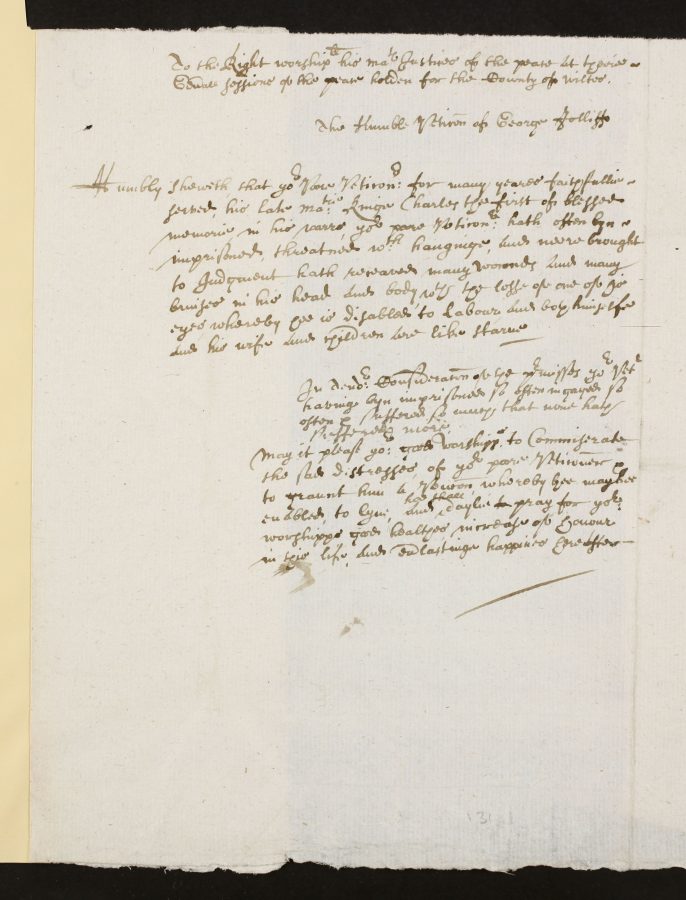 To the Right worshipll his Matis Justices of the peace at theire
Genall sessions of the peace holden for the County of Wiltes.
The Humble Peticon of George Jolliffe
Humbly Sheweth that yor Pore Peticonr: for many yeares faithfullie
served his late Matie Kinge Charles the first of blessed
memorie in his warrs, yor pore Peticonr hath often byn
imprisoned, threatned wth hanginge and neere brought
to Judgment hath receaved many wounds and many
bruises in his head and body, wth the losse of one of his
eyes, whereby hee is disabled to Labour and both himselfe
and his wife and children are like starve
In tendr: Consideracon of the premisses yor Petr
having byn imprisoned so often ingaged so
often & suffered so much that none hath
suffered more.
May it please yor: good worshipps to Commiserate
the sad distresses of yor pore Peticoner &
to graunt him a Pencon whereby hee may bee
enabled to lyve, and hee shall daylie pray for yor
worshipps good healthes, increase of honour
in this life and everlastinge happines hereafter
31